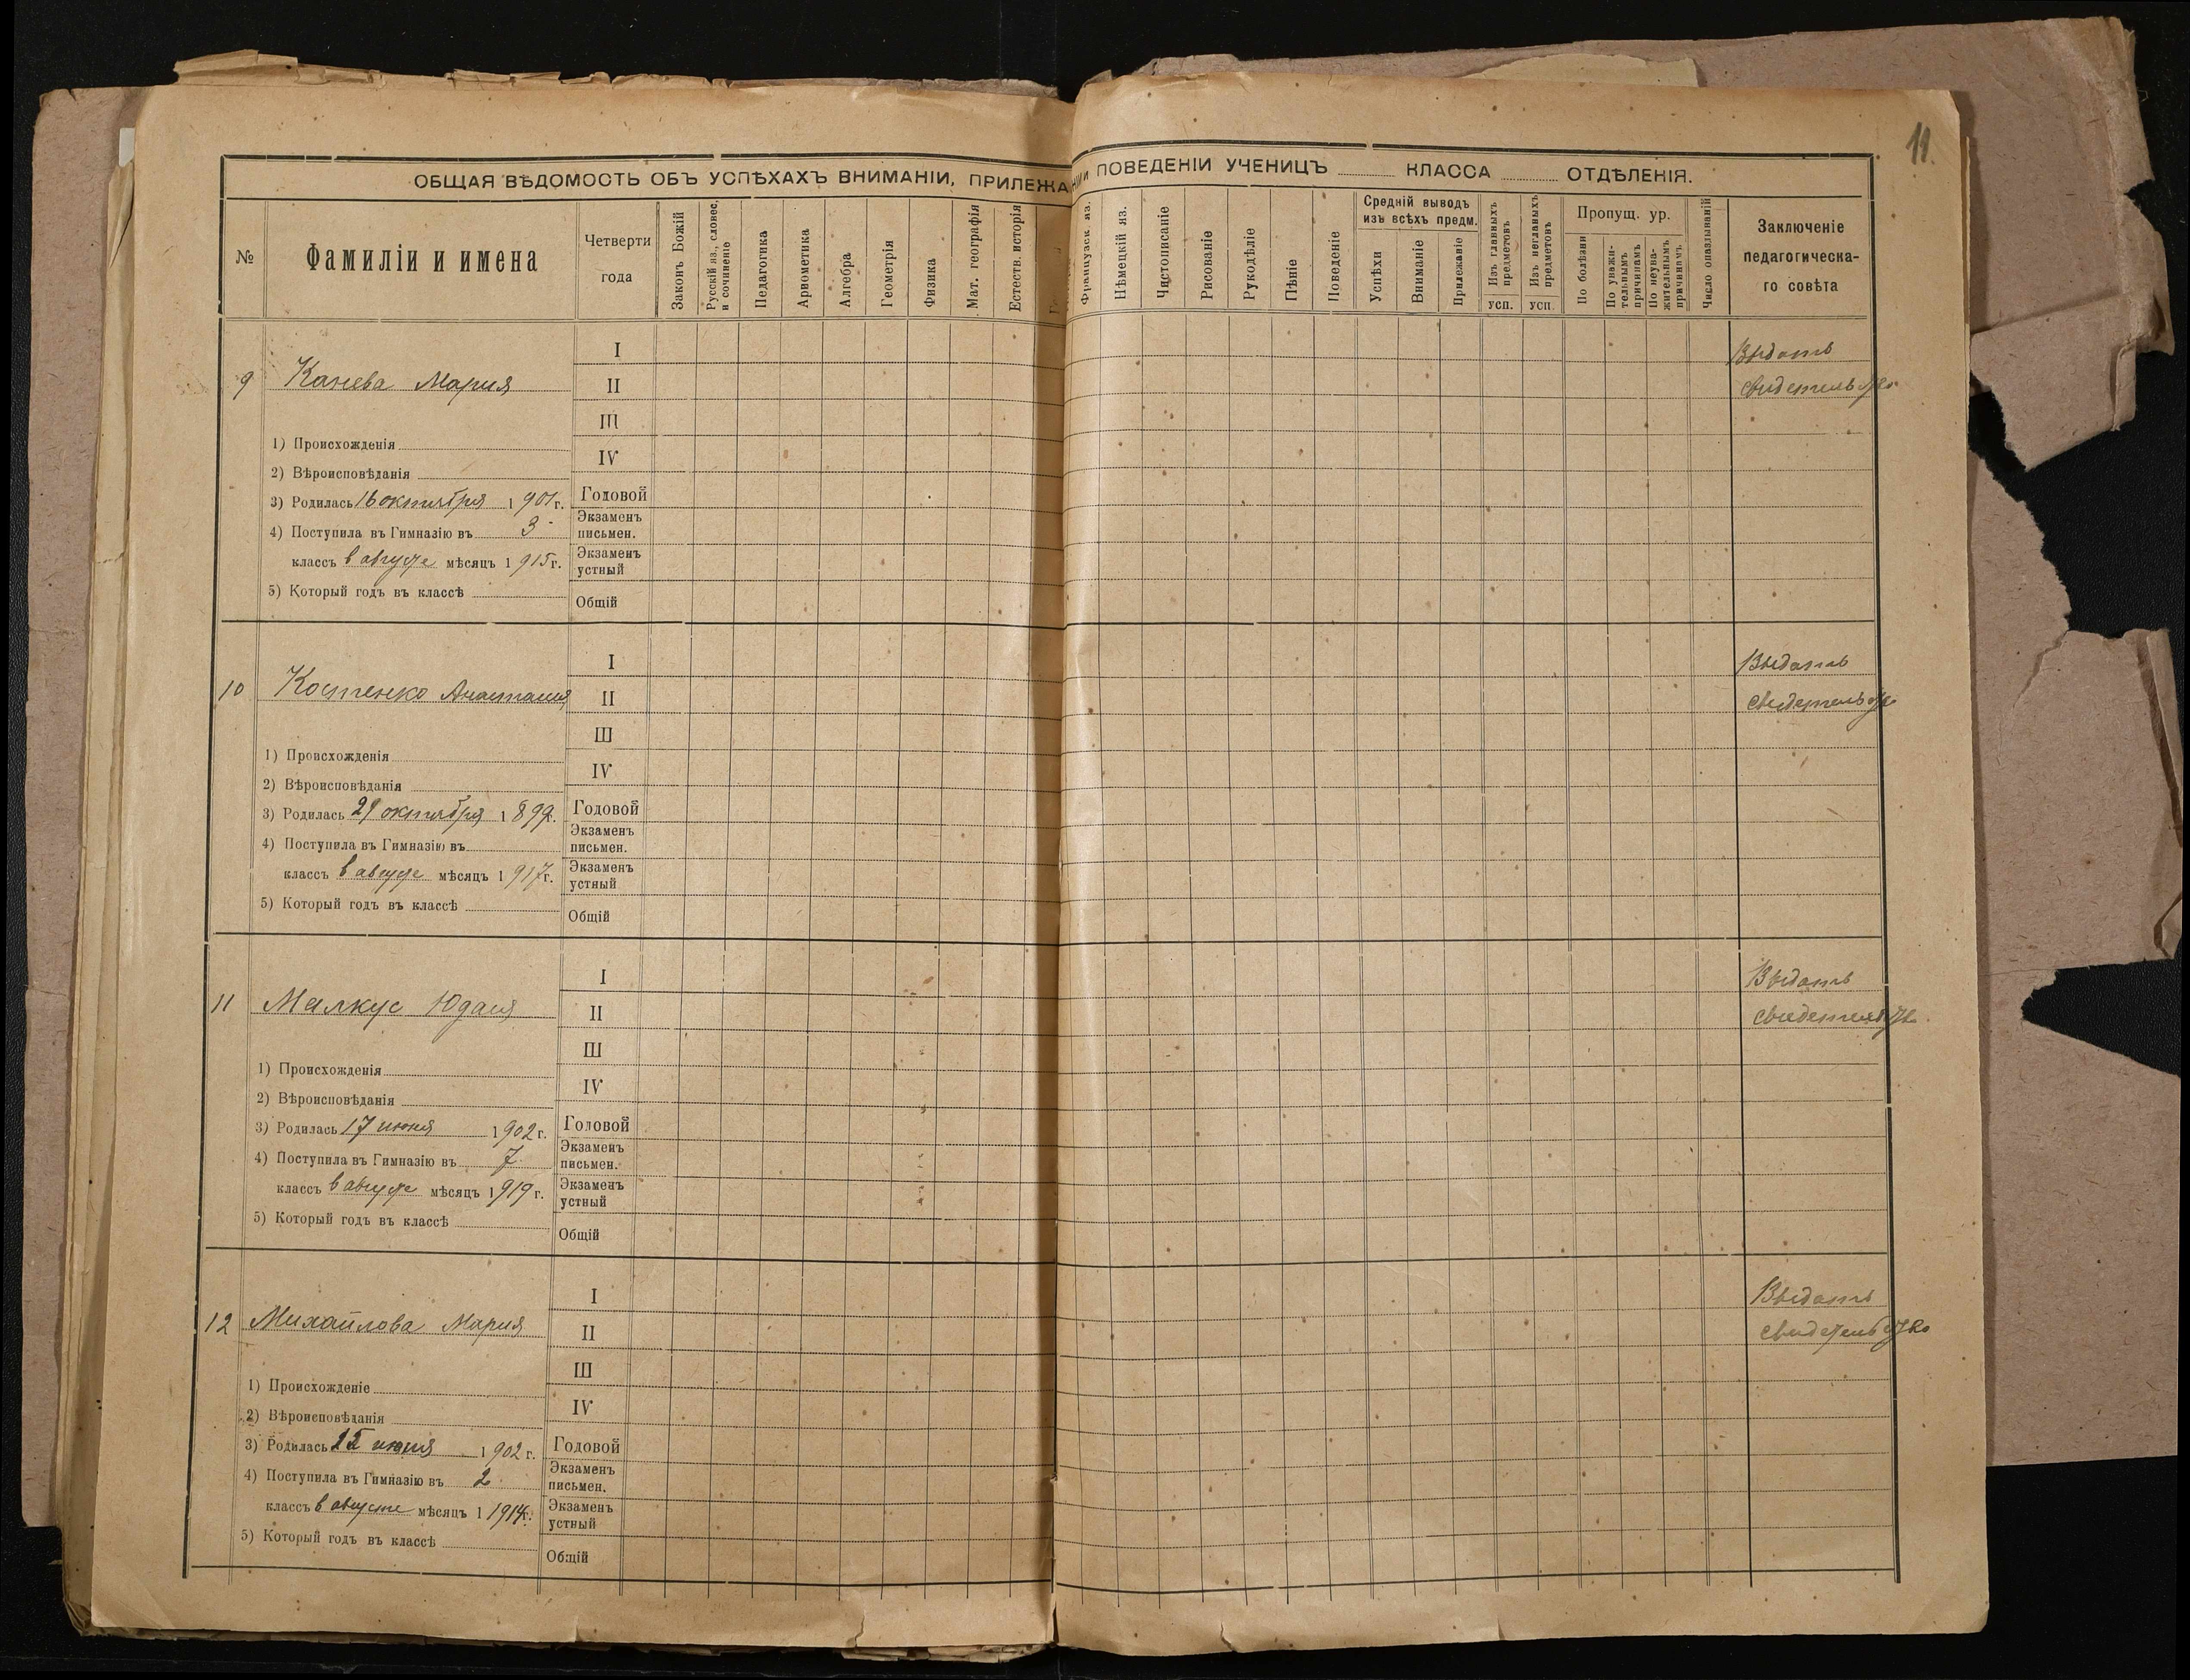 11.
ОБЩАЯ ВѢДОМОСТЬ ОБЪ УСПѢХАХЪ ВНИМАНІИ, ПРИЛЕЖАНІИ и ПОВЕДЕНІИ УЧЕНИЦЪ КЛАССА ОТДѢЛЕНІЯ.
№
Фамиліи и имена
Четверти
года
Законъ Божій
Русскій яз., словес.
и сочиненіе
Педагогика
Арвометика
Алгебра
Геометрія
Физика
Мат. географія
Естеств. исторія
Французск. яз.
Нѣмецкій яз.
Чистописаніе
Рисованіе
Рукодѣліе
Пѣніе
Поведеніе
Средній выводъ
изъ всѣхъ предм.
Успѣхи
Вниманіе
Прилежаніе
Изъ главныхъ
предметовъ
усп.
Изъ неглавныхъ
предметовъ
усп.
Пропущ. ур.
По болѣзни
По уважи-
тельнымъ
причинамъ
По неува-
жительнымъ
причинамъ
Число опаздываній
Заключеніе
педагогическа-
го совѣта
9
Канева Мария
1) Происхожденія
2) Вѣроисповѣданія
3) Родилась 16 октября 1901 г.
4) Поступила въ Гимназію въ 3
классъ в августе мѣсяцъ 1915 г.
5) Который годъ въ классѣ
I
II
III
IV
Годовой
Экзаменъ
письмен.
Экзаменъ
устный
Общій
Выдать
свидетельство
10
Костенко Анастасия
1) Происхожденія
2) Вѣроисповѣданія
3) Родилась 29 октября 1899.
4) Поступила въ Гимназію въ
классъ в августе мѣсяцъ 1917 г.
5) Который годъ въ классѣ
I
II
III
IV
Годовой
Экзаменъ
письмен.
Экзаменъ
устный
Общій
Выдать
свидетельство
11
Малкус
1) Происхожденія
2) Вѣроисповѣданія
3) Родилась 17 июня 1902 г.
4) Поступила въ Гимназію въ 7
классъ в августе мѣсяцъ 1919 г.
5) Который годъ въ классѣ
I
II
III
IV
Годовой
Экзаменъ
письмен.
Экзаменъ
устный
Общій
Выдать
свидетельство
12
Михайлова Мария
1) Происхожденіе
2) Вѣроисповѣданія
3) Родилась июня 1902 г.
4) Поступила въ Гимназію въ 2
классъ в августе мѣсяцъ 1 1914 г.
5) Который годъ въ классѣ
I
II
III
IV
Годовой
Экзаменъ
письмен.
Экзаменъ
устный
Общій
Выдать
свидетельство